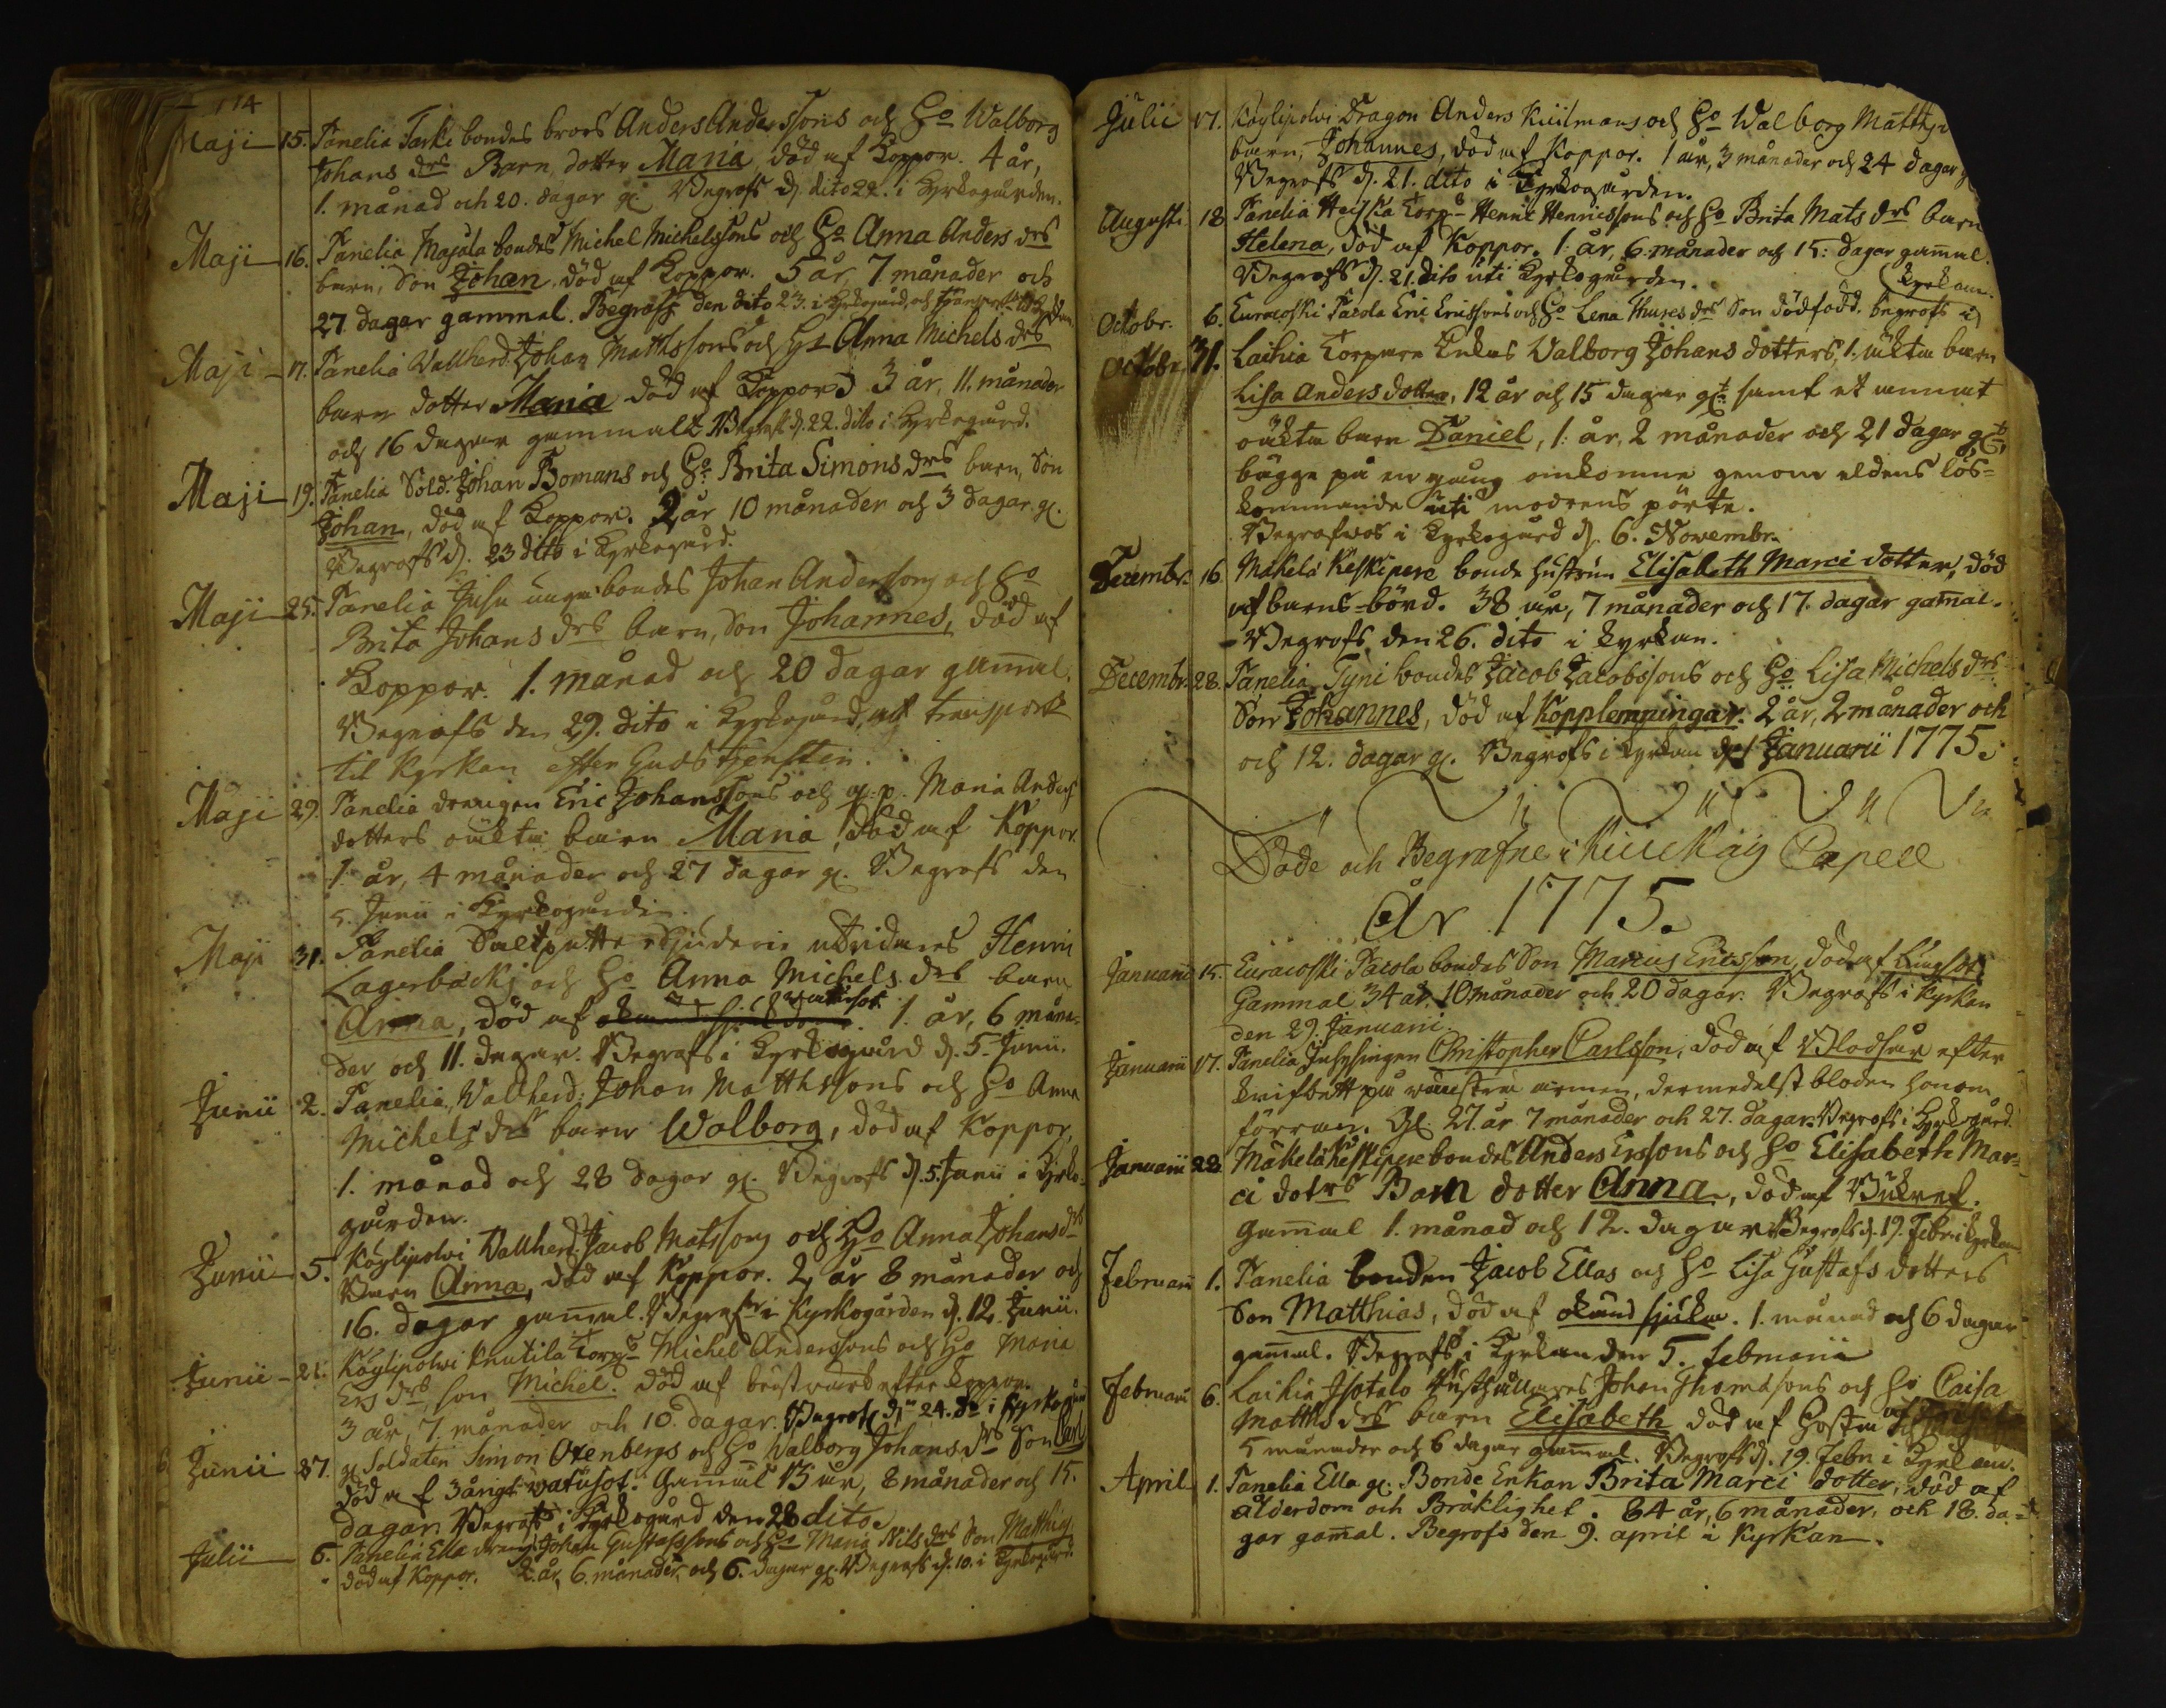 114
Maji 15. Panelia Tarki bondes broers Anders Anderssons och Ho Walborg
Johans drs Barn, dotter Maria, död af Koppor. 4 år,
1. månad och 20. dagar gl. Begrofs d. dito 22. i Kyrkogården.
Maji 16. Panelia Majala bondes Michel Michelssons och Ho Anna Anders drs
barn, Son Johan, död af Koppor. 5 år, 7 månader och
27 dagar gammal. Begrofs den dito 23. i Kyrkogård, och
Maji 17. Panelia Vallherd. Johan Mathssons och Ho Anna Michels drs
barn dotter Maria död af Koppor 3 år, 11. månader
och 16 dagar gammalt Begrofs d. 22. dito i Kyrkogård.
Maji 19. Panelia Sold. Johan Bomans och Ho Brita Simons drs barn, Son
Johan, död af Koppor. 2 år 10 månader och 3 dagar gl.
Begrofs d. 23 dito i Kyrkogård.
Maji 25. Panelia Juhu unga bondes Johan Anderssons och Ho
Brita Johans drs barn, Son Johannes, död af
Koppor. 1. månad och 20 dagar gammal.
Begrofs den 29. dito i Kyrkogård, och transport
til Kyrkan efter Gudstjensten.
Maji 29. Panelia drengen Eric Johanssons och gl. p. Maria Anders
dotters oäkta barn Maria, död af Koppor.
1. år, 4 månader och 27 dagar gl. Begrofs den
5. Junii i Kyrkogården.
Maji 31. Panelia Saltpetter Sjuderie utridares Henric
Lagerbäcks och Ho Anna Michels drs barn
Anna, död af 1. år, 6 måna-
der och 11. dagar. Begrofs i Kyrkogård d. 5. Junii.
Junii 2. Panelia, Vallherd: Johan Matthssons och Ho Anna
Michels drs barn Walborg, död af Koppor,
1. månad och 28 dagar gl. Begrofs d. 5. Junii i Kyrko-
gården.
Junii 5. Köylipolvi Vallherd. Jacob Matssons och Ho Anna Johans drs
Barn Anna, död af Koppor. 2 år 8 månader och
16. dagar gammal. Begrofs i Kyrkogården d. 12. Junii.
Junii 21. Köylipolvi Knutila Torp. Michel Anderssons och Ho Maria
Ers drs, son Michel. död af bröstvärk efter koppor.
3 år, 7. månader och 10. dagar. Begrofs dn 24. do i Kyrkogård
Junii 27. gl. Soldaten Simon Oxenbergs och Ho Walborg Johans drs Son Carl
död af 3 årigt vatusot. Gammal 15 år, 8 månader och 15.
dagar. Begrofs i Kyrkogård den 28 dito.
Julii 6. Panelia Ella dreng. Johan Gustafssons och Ho Maria Nils drs Son Matthias.
död af Koppor. 2. år, 6. månader, och 6. dagar gl. Begrofs d. 10. i Kyrkogård.
Julii 17. Köylipolvi Dragon Anders Kiulmans och Ho Walborg Matths
barn, Johannes, död af Koppor. 1 år, 3 månader och 24 dagar
Begrofs d. 21. dito i Kyrkogården.
Augusti 18 Panelia Heiska Torp. Henric Henricssons och Ho Brita Mats drs barn
Helena, död af Koppor. 1. år, 6. månader och 15: dagar gammal.
Begrofs d. 21. dito uti Kyrkogården.
Octobr. 6. Euracoski Pacola Eric Ericssons och Ho Lena Thures drs Son dödfödd. begrofs i kyrkan.
Octobr. 31. Laihia Torpare Enkas Walborg Johans dotters, 1. äkta barn
Lisa Anders dotter, 12 år och 15 dagar glt samt et annat
oäkta barn Daniel, 1. år, 2 månader och 21 dagar glt,
bägge på en gång omkomne genom eldens lös-
kommande uti modrens pörte.
Begrafwos i Kyrkogård d. 6. Novembr.
Decembr. 16. Mäkelä Keskipere bonde hustrun Elisabeth Marci dotter, död
af barns-börd. 38 år, 7 månader och 17. dagar gamal.
Begrofs den 26. dito i kyrkan.
Decembr. 28. Panelia Tyni bondes Jacob Jacobssons och Ho Lisa Michels drs
Son Johannes, död af Kopplempningar. 2 år, 2 månader och
och 12. dagar gl. Begrofs i Kyrkan d. 1 Januarii 1775.
Döde och Begrafne i Kiukais Capell
År 1775.
Januarii 15. Euracoski Pacola bondes Son Marcus Ericsson, död af Lungsot.
Gammal 34 år. 10 månader och 20 dagar. Begrofs i Kyrkan
den 29. Januarii.
Januarii 17. Panelia Inhysingen Christopher Carlsson, död af Blodsår efter
knifvett på vänstra armen, dermedelst bloden honom
förrann. Gl. 27. år 7 månader och 27. dagar. Begrofs i Kyrkogård.
Januarii 22. Mäkelä Keskipere bondes Anders Erssons och Ho Elisabeth Mar-
ci dotrs Barn dotter Anna, död af Bukref.
Gammal 1. månad och 12. dagar. Begrofs d. 19. Febr. i Kyrkan.
Februarii 1. Panelia bonden Jacob Ellas och Ho Lisa Gustafs dotters
Son Matthias, död af okänd sjuka. 1. månad och 6 dagar
gammal. Begrofs i Kyrkan den 5. februarii
Februarii 6. Laihia Isotalo Rusthållares Johan Thomasons och Ho Caisa
Matths drs barn Elisabeth död af Hosta
5 månader och 6 dagar gammal. Begrofs d. 19. Febr. i Kyrkan.
April 1. Panelia Ella gl. Bonde Enkan Brita Marci dotter, död af
ålderdom och Bräklighet. 84 år, 6 månader, och 18. da-
gar gamal. Begrofs den 9. april i Kyrkan.